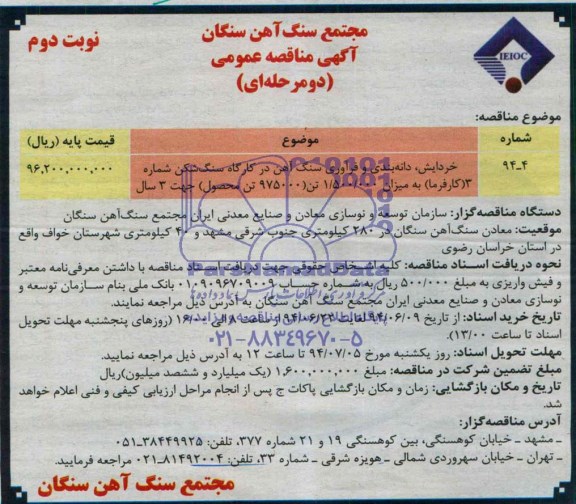 مجتمع سنگ آهن سنگان
آگهی مناقصه عمومی
(دومرحله‌ای)
نوبت دوم
IEIOC
موضوع مناقصه:
شماره موضوع قیمت پایه (ریال)
۹۴-۴ خردایش، دانه‌بندی و فرآوری سنگ آهن در کارگاه سنگ‌شکن شماره ۹۶,۲۰۰,۰۰۰,۰۰۰
۳(کارفرما) به میزان ۱/۵۰۰/۰۰۰ تن(۹۷۵۰۰۰ تن محصول) جهت ۳ سال
دستگاه مناقصه‌گزار: سازمان توسعه و نوسازی معادن و صنایع معدنی ایران مجتمع سنگ‌آهن سنگان
موقعیت: معادن سنگ‌آهن سنگان در ۲۸۰ کیلومتری جنوب شرقی مشهد و ۴۰ کیلومتری شهرستان خواف واقع
در استان خراسان رضوی
نحوه دریافت اسناد مناقصه: کلیه اشخاص حقوقی جهت دریافت اسناد مناقصه با داشتن معرفی‌نامه معتبر
و فیش واریزی به مبلغ ۵۰۰/۰۰۰ ریال به شماره حساب ۰۱۰۹۰۹۶۷۰۹۰۰۹ بانک ملی بنام سازمان توسعه و
نوسازی معادن و صنایع معدنی ایران مجتمع سنگ آهن سنگان به آدرس ذیل مراجعه نمایند.
تاریخ خرید اسناد: از تاریخ ۹۴/۰۶/۰۹ لغایت ۹۴/۰۶/۲۲ از ساعت ۸ الی ۱۶/۰۰ (روزهای پنجشنبه مهلت تحویل
اسناد تا ساعت ۱۳/۰۰).
مهلت تحویل اسناد: روز یکشنبه مورخ ۹۴/۰۷/۰۵ تا ساعت ۱۲ به آدرس ذیل مراجعه نمایید.
مبلغ تضمین شرکت در مناقصه: مبلغ ۱,۶۰۰,۰۰۰,۰۰۰ (یک میلیارد و ششصد میلیون)ریال
تاریخ و مکان بازگشایی: زمان و مکان بازگشایی پاکات ج پس از انجام مراحل ارزیابی کیفی و فنی اعلام خواهد
شد.
آدرس مناقصه‌گزار:
ـ مشهد ـ خیابان کوهسنگی، بین کوهسنگی ۱۹ و ۲۱ شماره ۳۷۷، تلفن: ۳۸۴۴۹۹۲۵-۰۵۱
ـ تهران ـ خیابان سهروردی شمالی ـ هویزه شرقی ـ شماره ۳۳، تلفن: ۸۱۴۹۲۰۰۴-۰۲۱ مراجعه فرمایید.
مجتمع سنگ آهن سنگان
ParsNamadData
۰۲۱-۸۸۳۴۹۶۷۰-۵